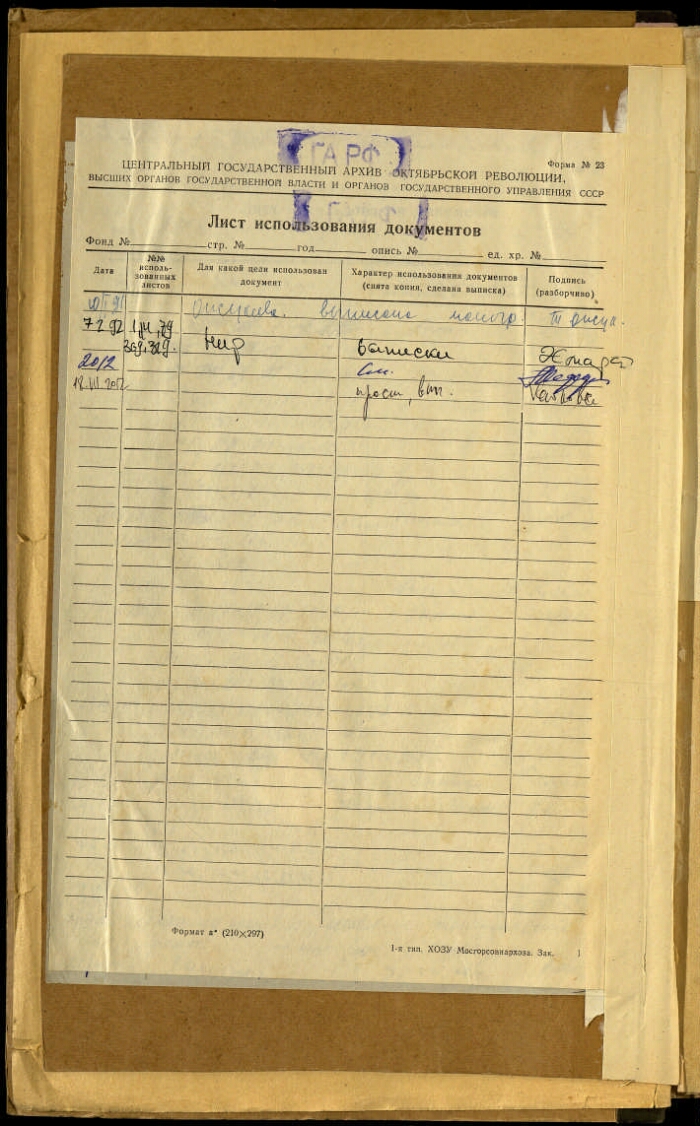 ГА РФ
Форма № 23
ЦЕНТРАЛЬНЫЙ ГОСУДАРСТВЕННЫЙ АРХИВ ОКТЯБРЬСКОЙ РЕВОЛЮЦИИ,
ВЫСШИХ ОРГАНОВ ГОСУДАРСТВЕННОЙ ВЛАСТИ И ОРГАНОВ ГОСУДАРСТВЕННОГО УПРАВЛЕНИЯ СССР
Лист использования документов
Фонд № стр. № год опись № ед. хр. №
Дата
№№ исполь-
зованных
листов
Для какой цели использован
документ
Характер использования документов
(снята копия, сделана выписка)
Подпись
(разборчиво)
7 2 92
нир
выписки
2012
См.
18.VII.2012
просм, вып.
Формат а⁴ (210×297)
1-я тип. ХОЗУ Мосгорсовнархоза. Зак.